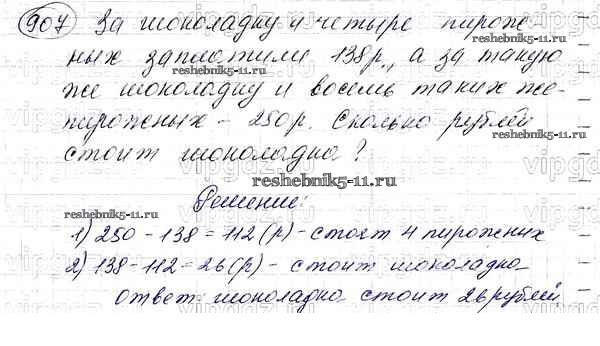 907 За шоколадку и четыре пирож-
ных заплотили 138р., а за такую
же шоколадку и восемь таких же
пирожных - 250р. Сколько рублей
стоит шоколадка?
Решение:
1) 250 - 138 = 112 (р) - стоят 4 пирожных
2) 138 - 112 = 26 (р) - стоит шоколадка
Ответ: шоколадка стоит 26 рублей
reshebnik5-11.ru
reshebnik5-11.ru
reshebnik5-11.ru
reshebnik5-11.ru
reshebnik5-11.ru
reshebnik5-11.ru
reshebnik5-11.ru